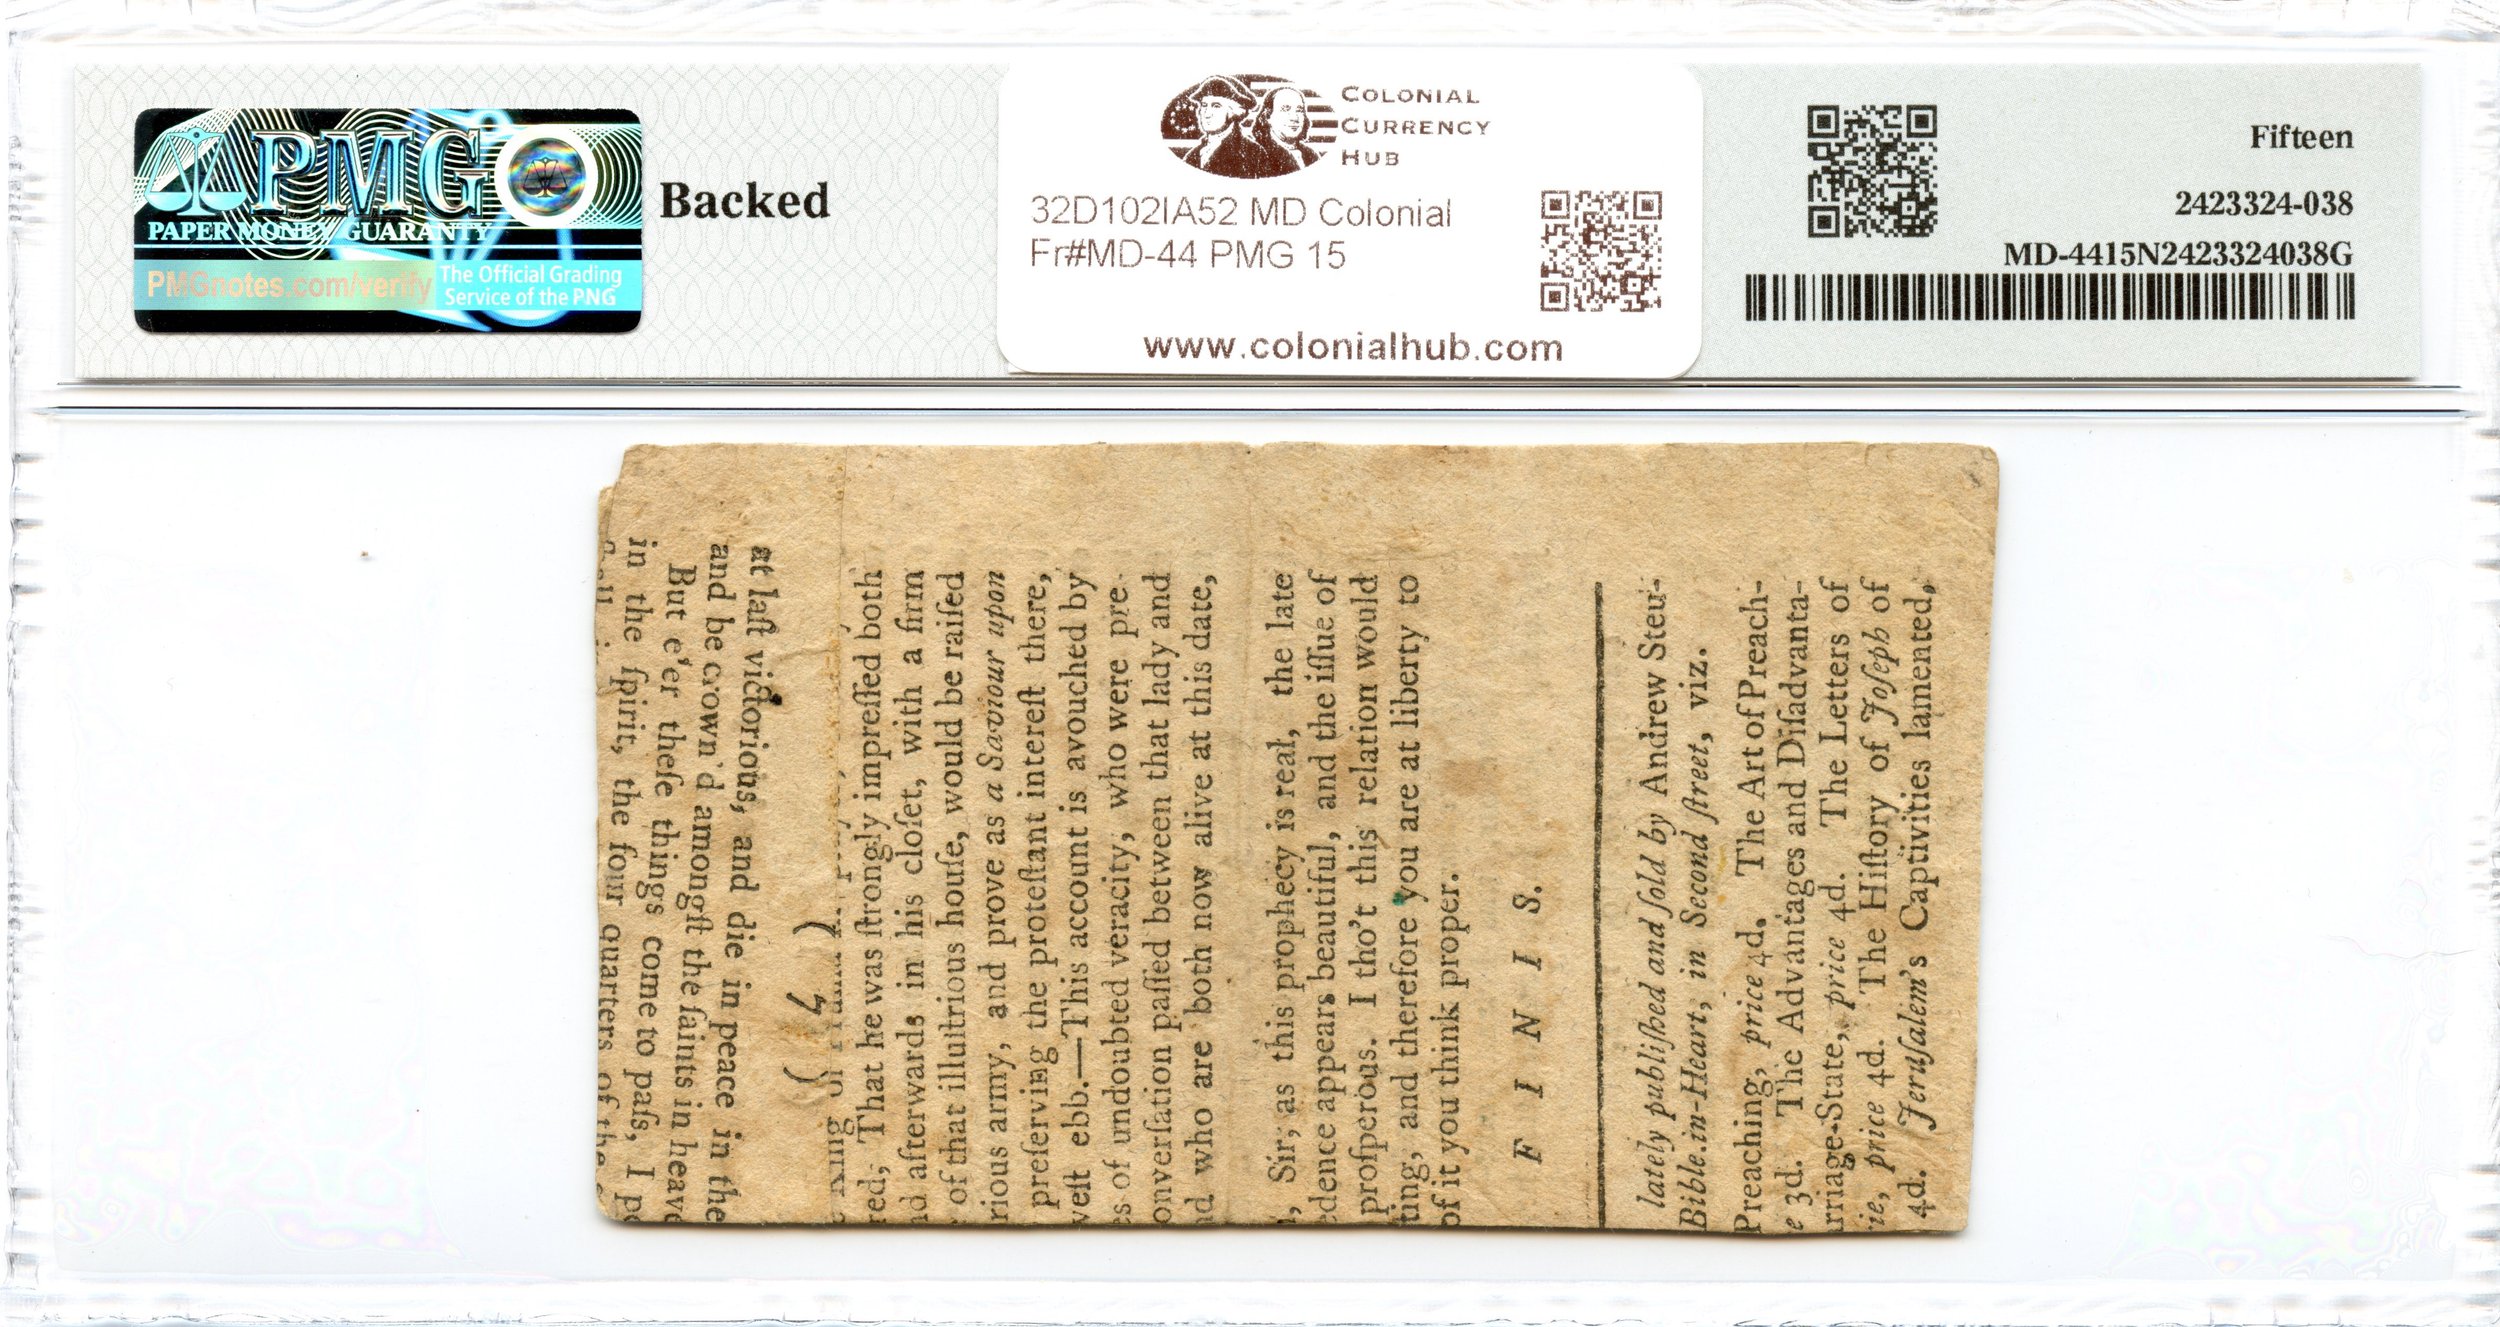 PMG
PAPER MONEY GUARANTY
PMGnotes.com/verify
The Official Grading
Service of the PNG
Backed
COLONIAL
CURRENCY
HUB
32D102IA52 MD Colonial
Fr#MD-44 PMG 15
www.colonialhub.com
Fifteen
2423324-038
MD-4415N2423324038G
at laſt victorious, and die in peace in the
and be crown'd amongſt the ſaints in heav
But e'er theſe things come to paſs, I p
in the ſpirit, the four quarters of the
( 7 )
red, That he was ſtrongly impreſſed both
d afterwards in his cloſet, with a firm
of that illuſtrious houſe, would be raiſed
rious army, and prove as a Saviour upon
preſerving the proteſtant intereſt there,
weſt ebb.—This account is avouched by
es of undoubted veracity, who were pre-
onverſation paſſed between that lady and
d who are both now alive at this date,
, Sir, as this prophecy is real, the late
dence appears beautiful, and the iſſue of
proſperous. I tho't this relation would
ting, and therefore you are at liberty to
of it you think proper.
F I N I S.
lately publiſhed and ſold by Andrew Steu-
Bible-in-Heart, in Second ſtreet, viz.
Preaching, price 4d. The Art of Preach-
e 3d. The Advantages and Diſadvanta-
rriage-State, price 4d. The Letters of
ie, price 4d. The Hiſtory of Joſeph of
4d. Jeruſalem's Captivities lamented,